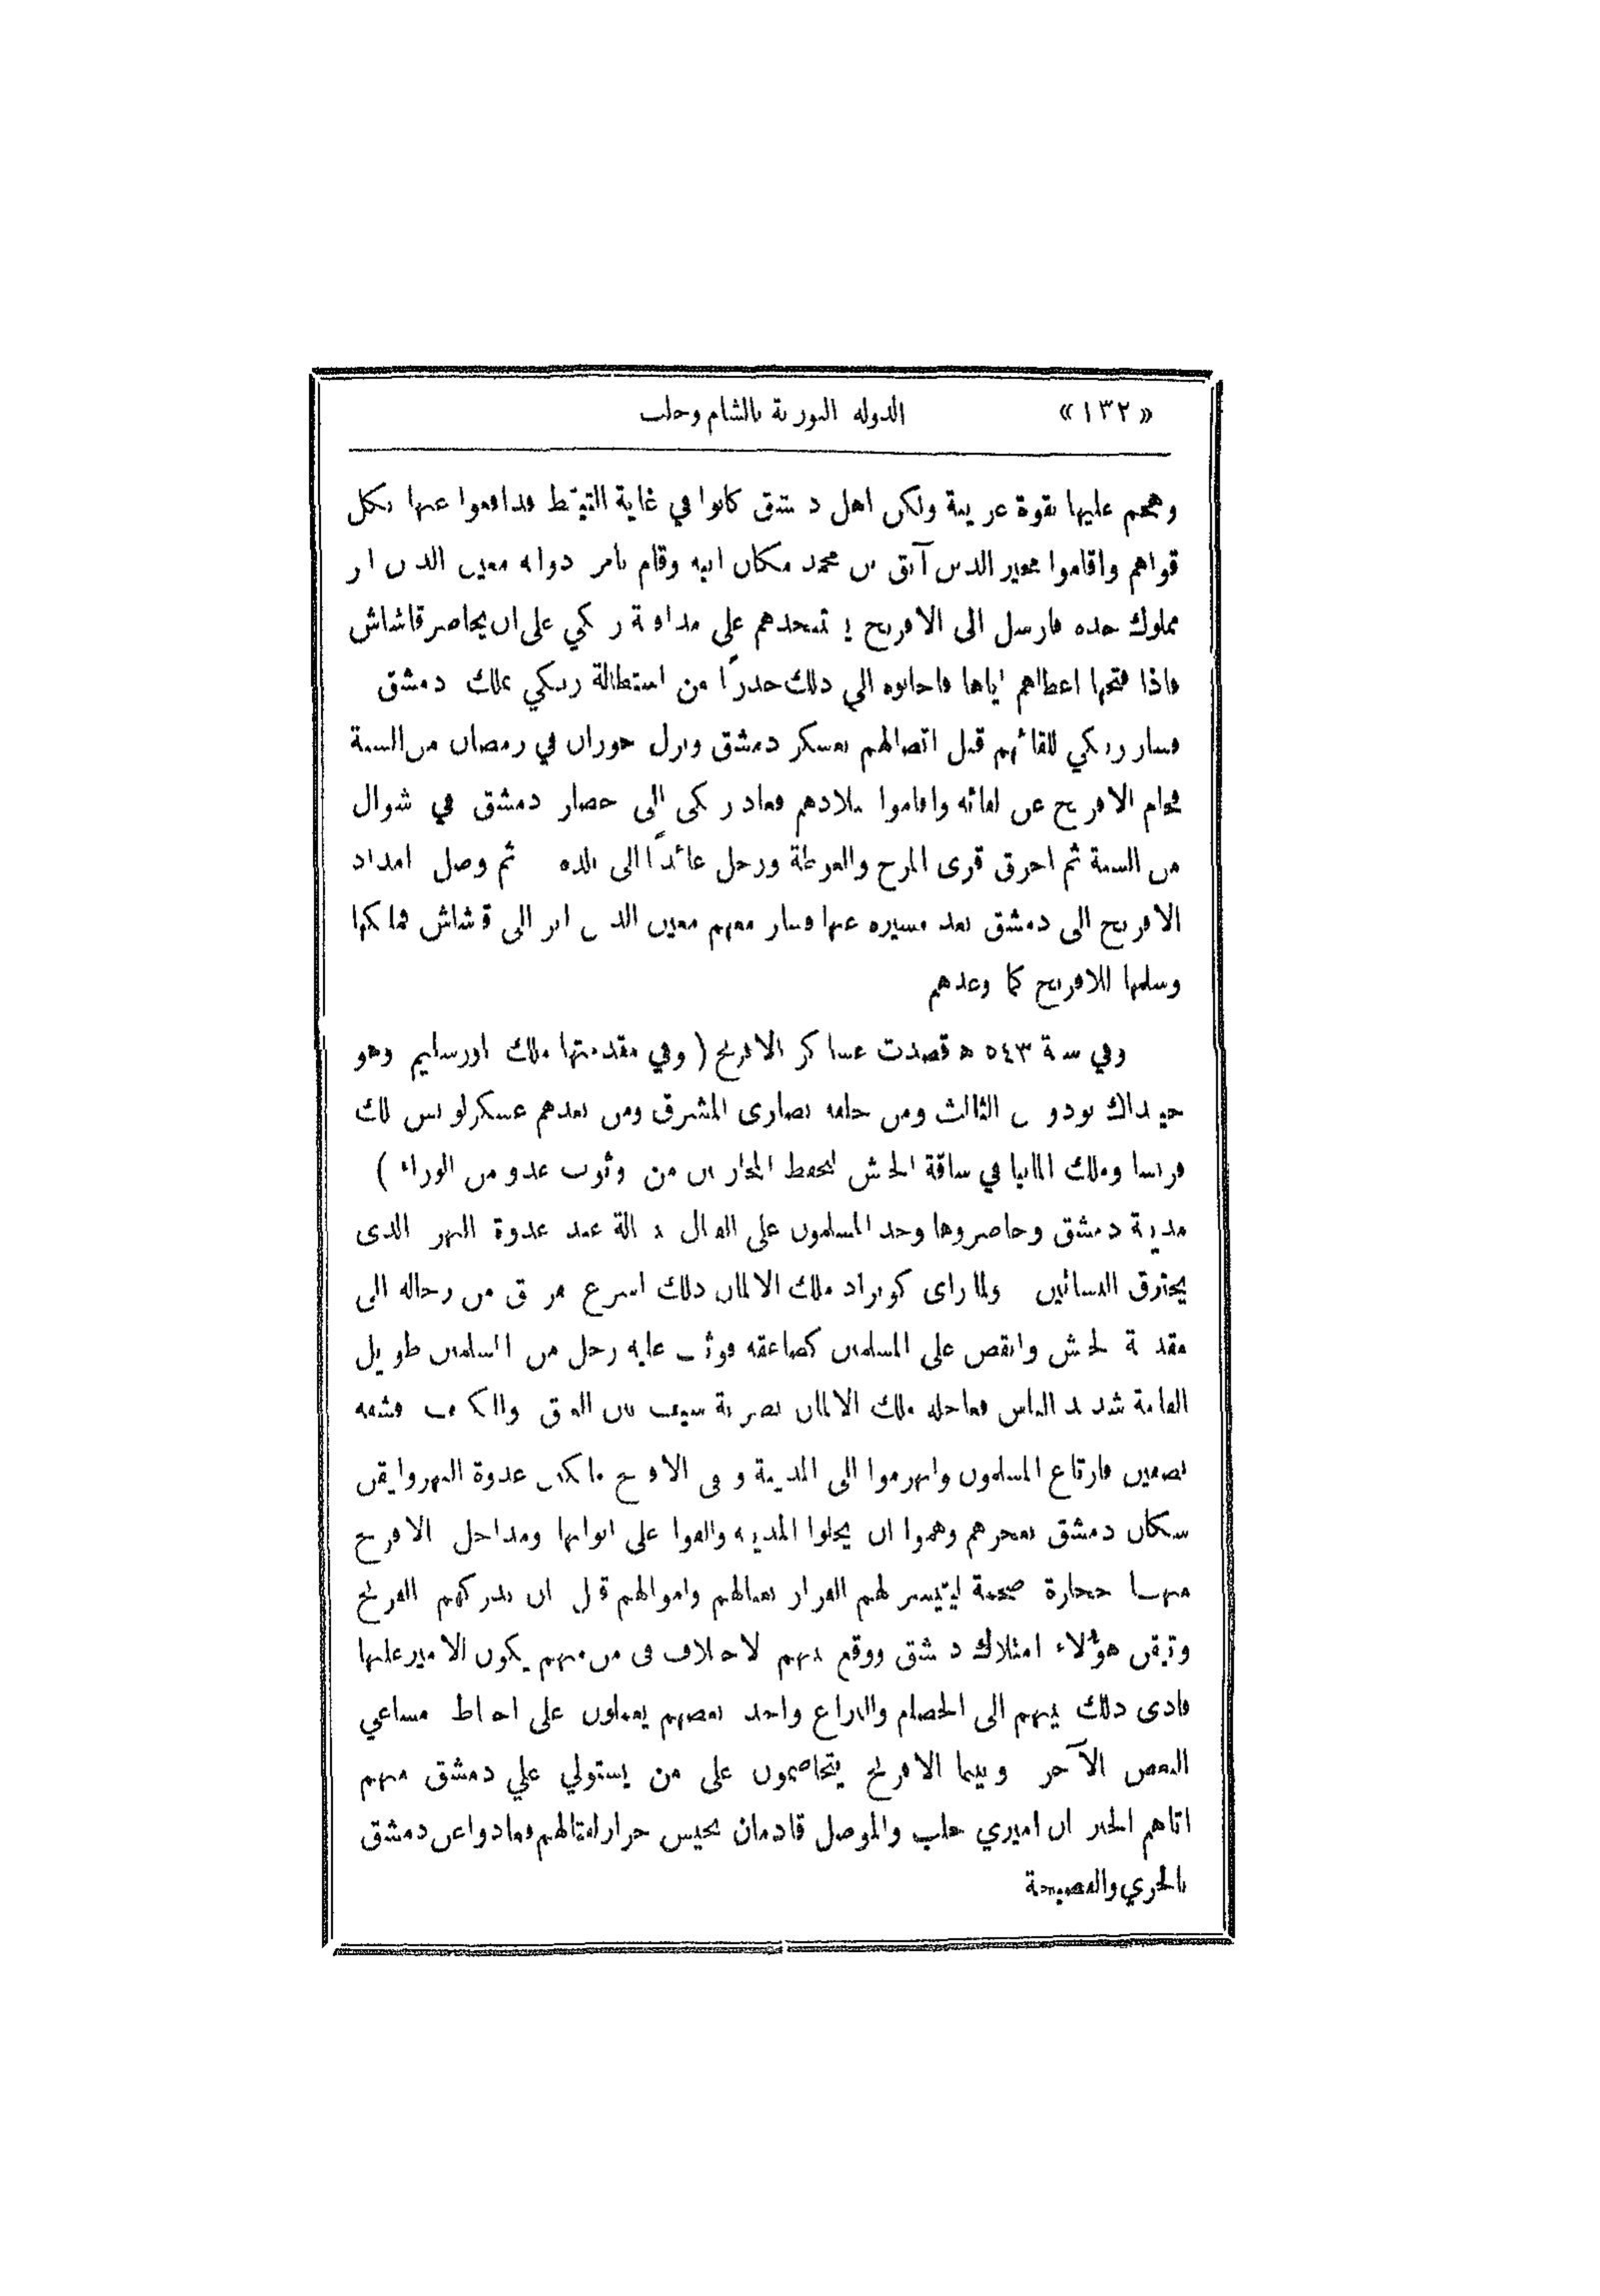 «١٣٢» الدولة النورية بالشام وحلب
وهجم عليها بقوة غريبة ولكن اهل دمشق كانوا في غاية التيقظ فدافعوا عنها بكل
قواهم واقاموا مجير الدين آبق بن محمد مكان ابيه وقام بامر دولته معين الدين انر
مملوك جده فارسل الى الافرنج يستنجدهم على مدافعة زنكي على ان يحاصر قاشاش
فاذا فتحها اعطاهم اياها فاجابوه الى ذلك حذرًا من استطالة زنكي بملك دمشق
فسار زنكي للقائهم قبل اتصالهم بعسكر دمشق ونزل حوران في رمضان من السنة
فخام الافرنج عن لقائه واقاموا ببلادهم فعاد زنكي الى حصار دمشق في شوال
من السنة ثم احرق قرى المرج والغوطة ورحل عائدًا الى بلده ثم وصل امداد
الافرنج الى دمشق بعد مسيره عنها فسار معهم معين الدين انر الى قاشاش فملكها
وسلمها للافرنج كما وعدهم
وفي سنة ٥٤٣ ه قصدت عساكر الافرنج (وفي مقدمتها ملك اورسليم وهو
حينذاك بودوين الثالث ومن خلفه نصارى المشرق ومن بعدهم عسكر لويس ملك
فرنسا وملك المانيا في ساقة الجيش لحفظ المحاربين من وثوب عدو من الوراء)
مدينة دمشق وحاصروها وجد المسلمون على القتال عند عدوة النهر الذى
يخترق البساتين ولما راى كونراد ملك الالمان ذلك اسرع من رجاله الى
مقدمة الجيش وانقض على المسلمين كصاعقة فوثب عليه رجل من المسلمين طويل
القامة شديد الباس فعاجله ملك الالمان بضربة سيف بين العنق والكتف فشقه
نصفين فارتاع المسلمون وانهزموا الى المدينة وبقي الافرنج مالكين عدوة النهر وايقن
سكان دمشق بعجزهم وهموا ان يخلوا المدينة والقوا على ابوابها ومداخل الافرنج
منها حجارة ضخمة ليتيسر لهم الفرار بعيالهم واموالهم قبل ان يدركهم الفرنج
وتيقن هؤلاء امتلاك دمشق ووقع بينهم الاختلاف فى من منهم يكون الامير عليها
فادى ذلك بينهم الى الخصام والنزاع واخذ بعضهم يعملون على احباط مساعي
البعض الآخر وبينما الافرنج يتخاصمون على من يستولي على دمشق منهم
اتاهم الخبر ان اميري حلب والموصل قادمان بجيش جرار لقتالهم فعادوا عن دمشق
بالخزي والفضيحة